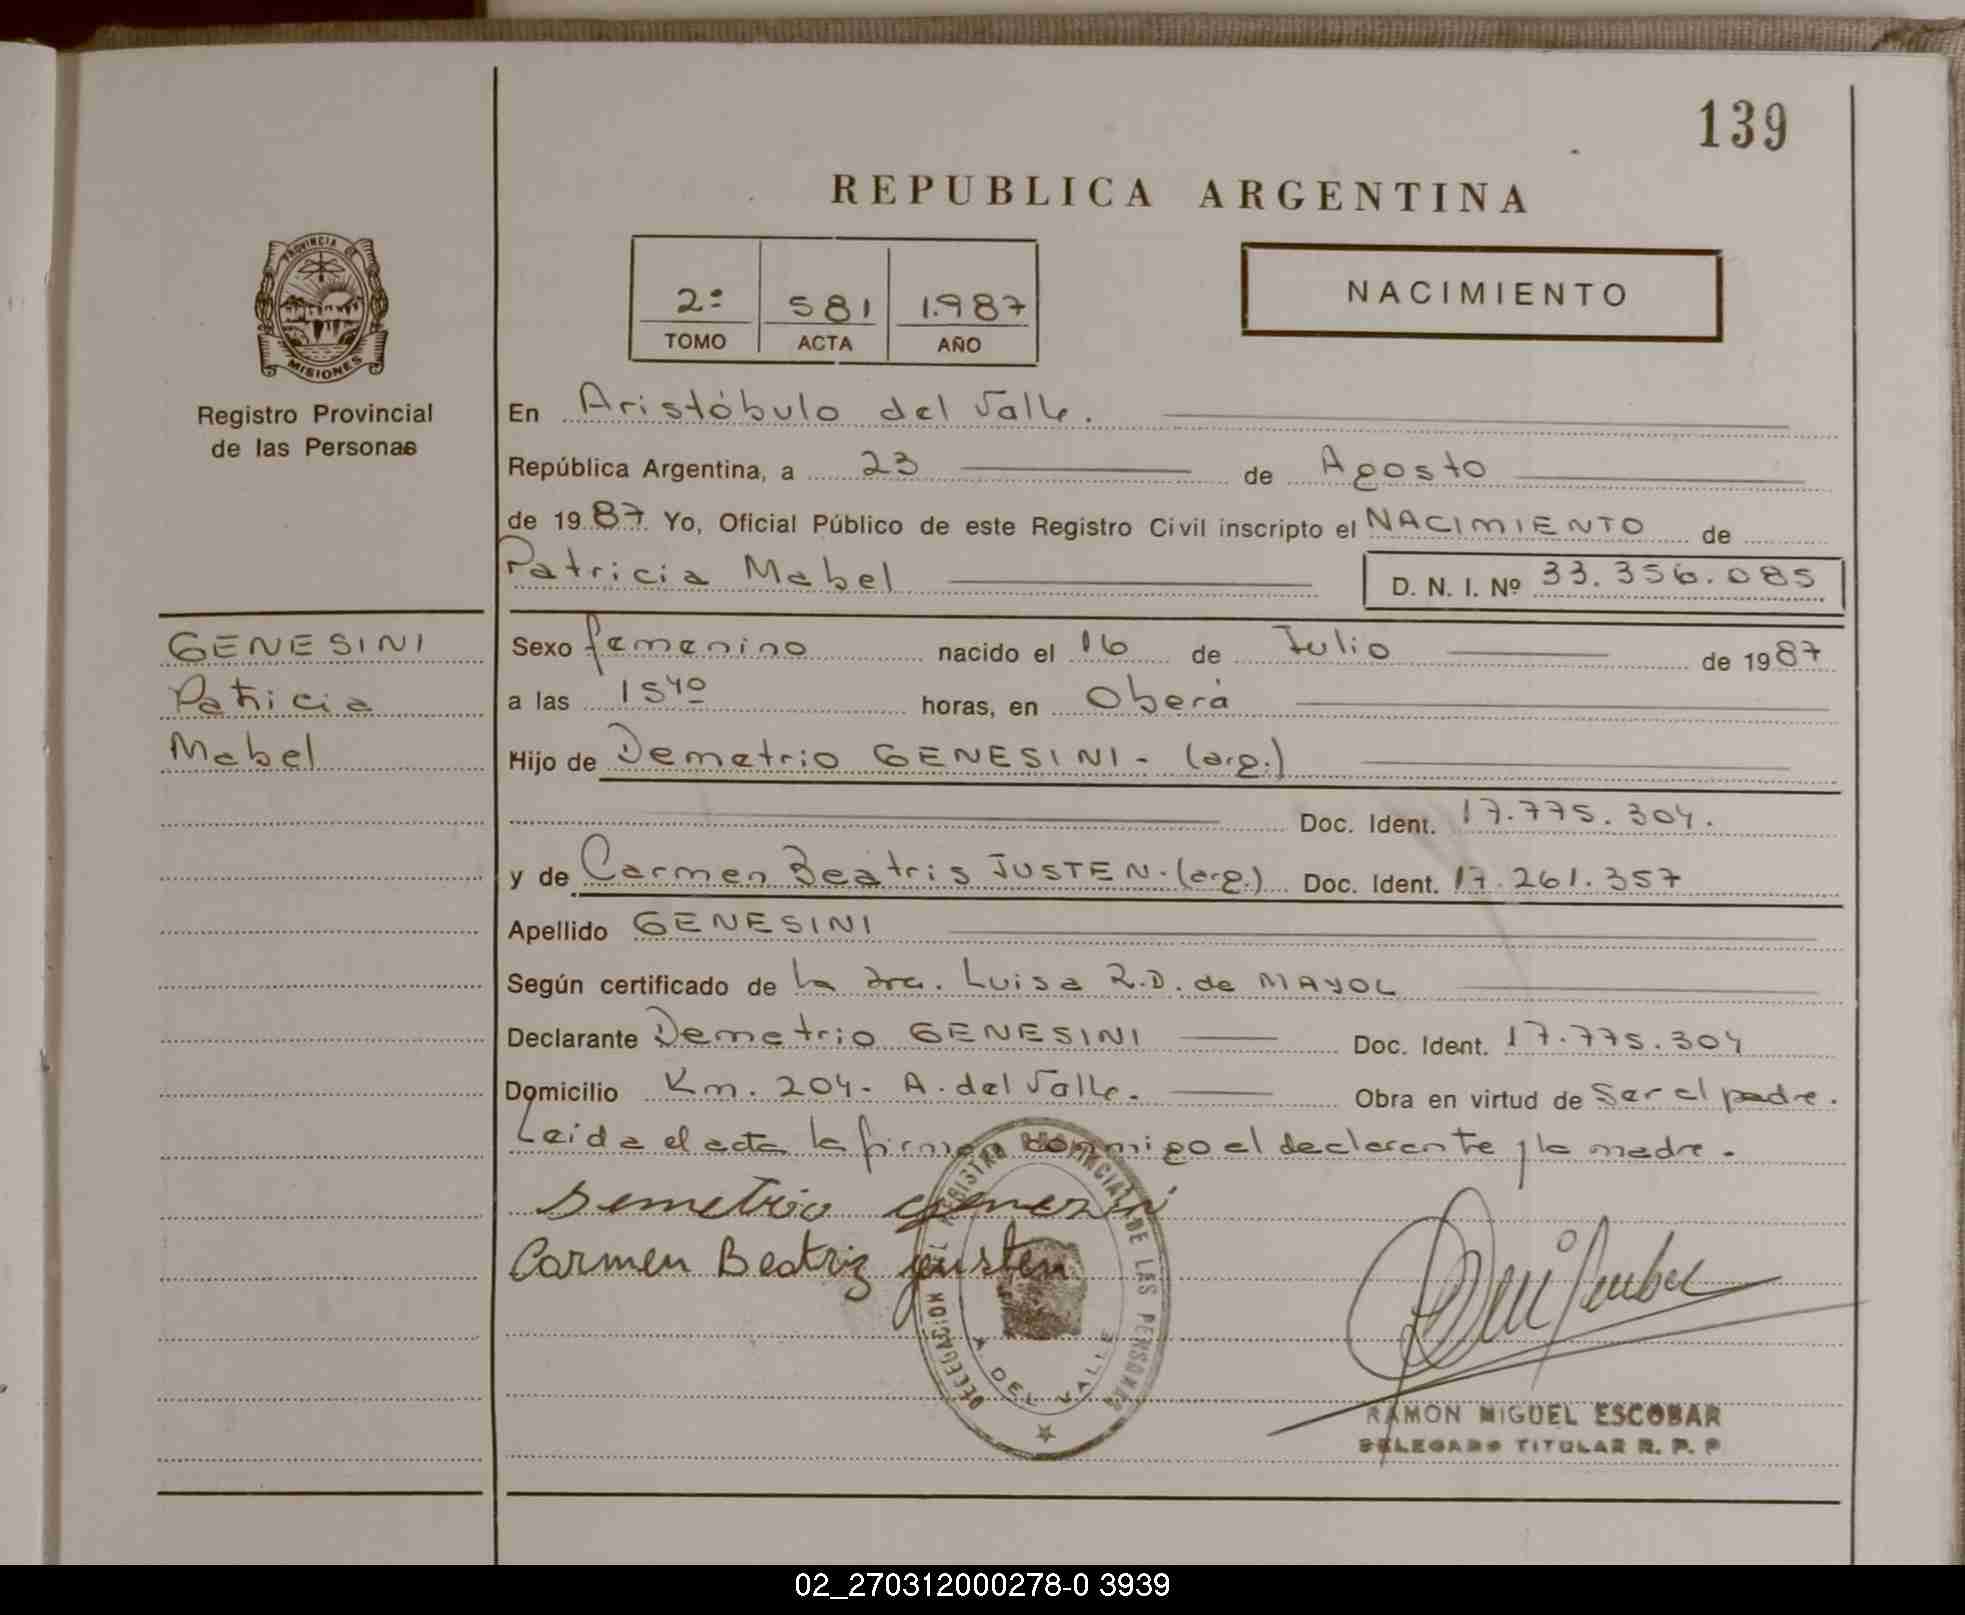 139
REPUBLICA ARGENTINA
PROVINCIA DE
MISIONES
Registro Provincial
de las Personas
2º 581 1.987
TOMO ACTA AÑO
NACIMIENTO
En Aristóbulo del Valle.
República Argentina, a 23 de Agosto
de 1987 Yo, Oficial Público de este Registro Civil inscripto el NACIMIENTO de
Patricia Mabel D. N. I. Nº 33.356.085
GENESINI
Patricia
Mabel
Sexo femenino nacido el 16 de Julio de 1987
a las 15⁴⁰ horas, en Oberá
Hijo de Demetrio GENESINI - (arg.)
Doc. Ident. 17.775.304.
y de Carmen Beatris JUSTEN. (arg.) Doc. Ident. 17.261.357
Apellido GENESINI
Según certificado de la Dra. Luisa R.D. de MAYOL
Declarante Demetrio GENESINI Doc. Ident. 17.775.304
Domicilio Km. 204- A. del Valle. Obra en virtud de Ser el padre.
Leida el acta la firman conmigo el declarante y la madre.
Demetrio genesini
Carmen Beatriz justen
DELEGACION DEL REGISTRO PROVINCIAL DE LAS PERSONAS
A. DEL VALLE
RAMON MIGUEL ESCOBAR
DELEGADO TITULAR R. P. P
02_270312000278-0 3939